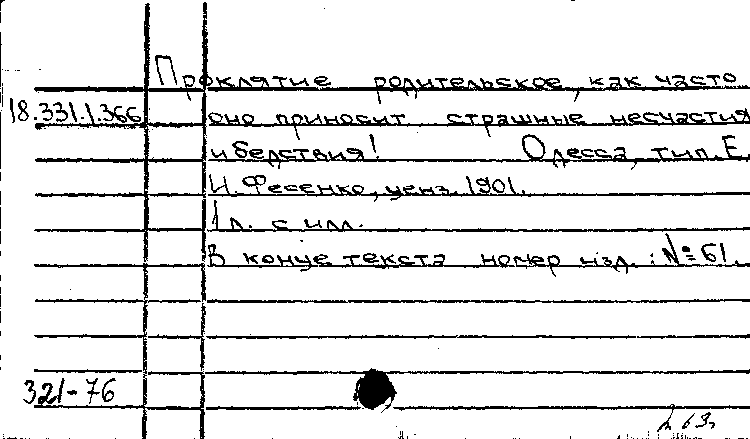 Проклятие родительское, как часто
18.331.1.366 оно приносит страшные несчастия
и бедствия! Одесса, тип. Е.
И. Фесенко, ценз. 1901.
1 л. с илл.
В конце текста номер изд.: № 61.
321-76